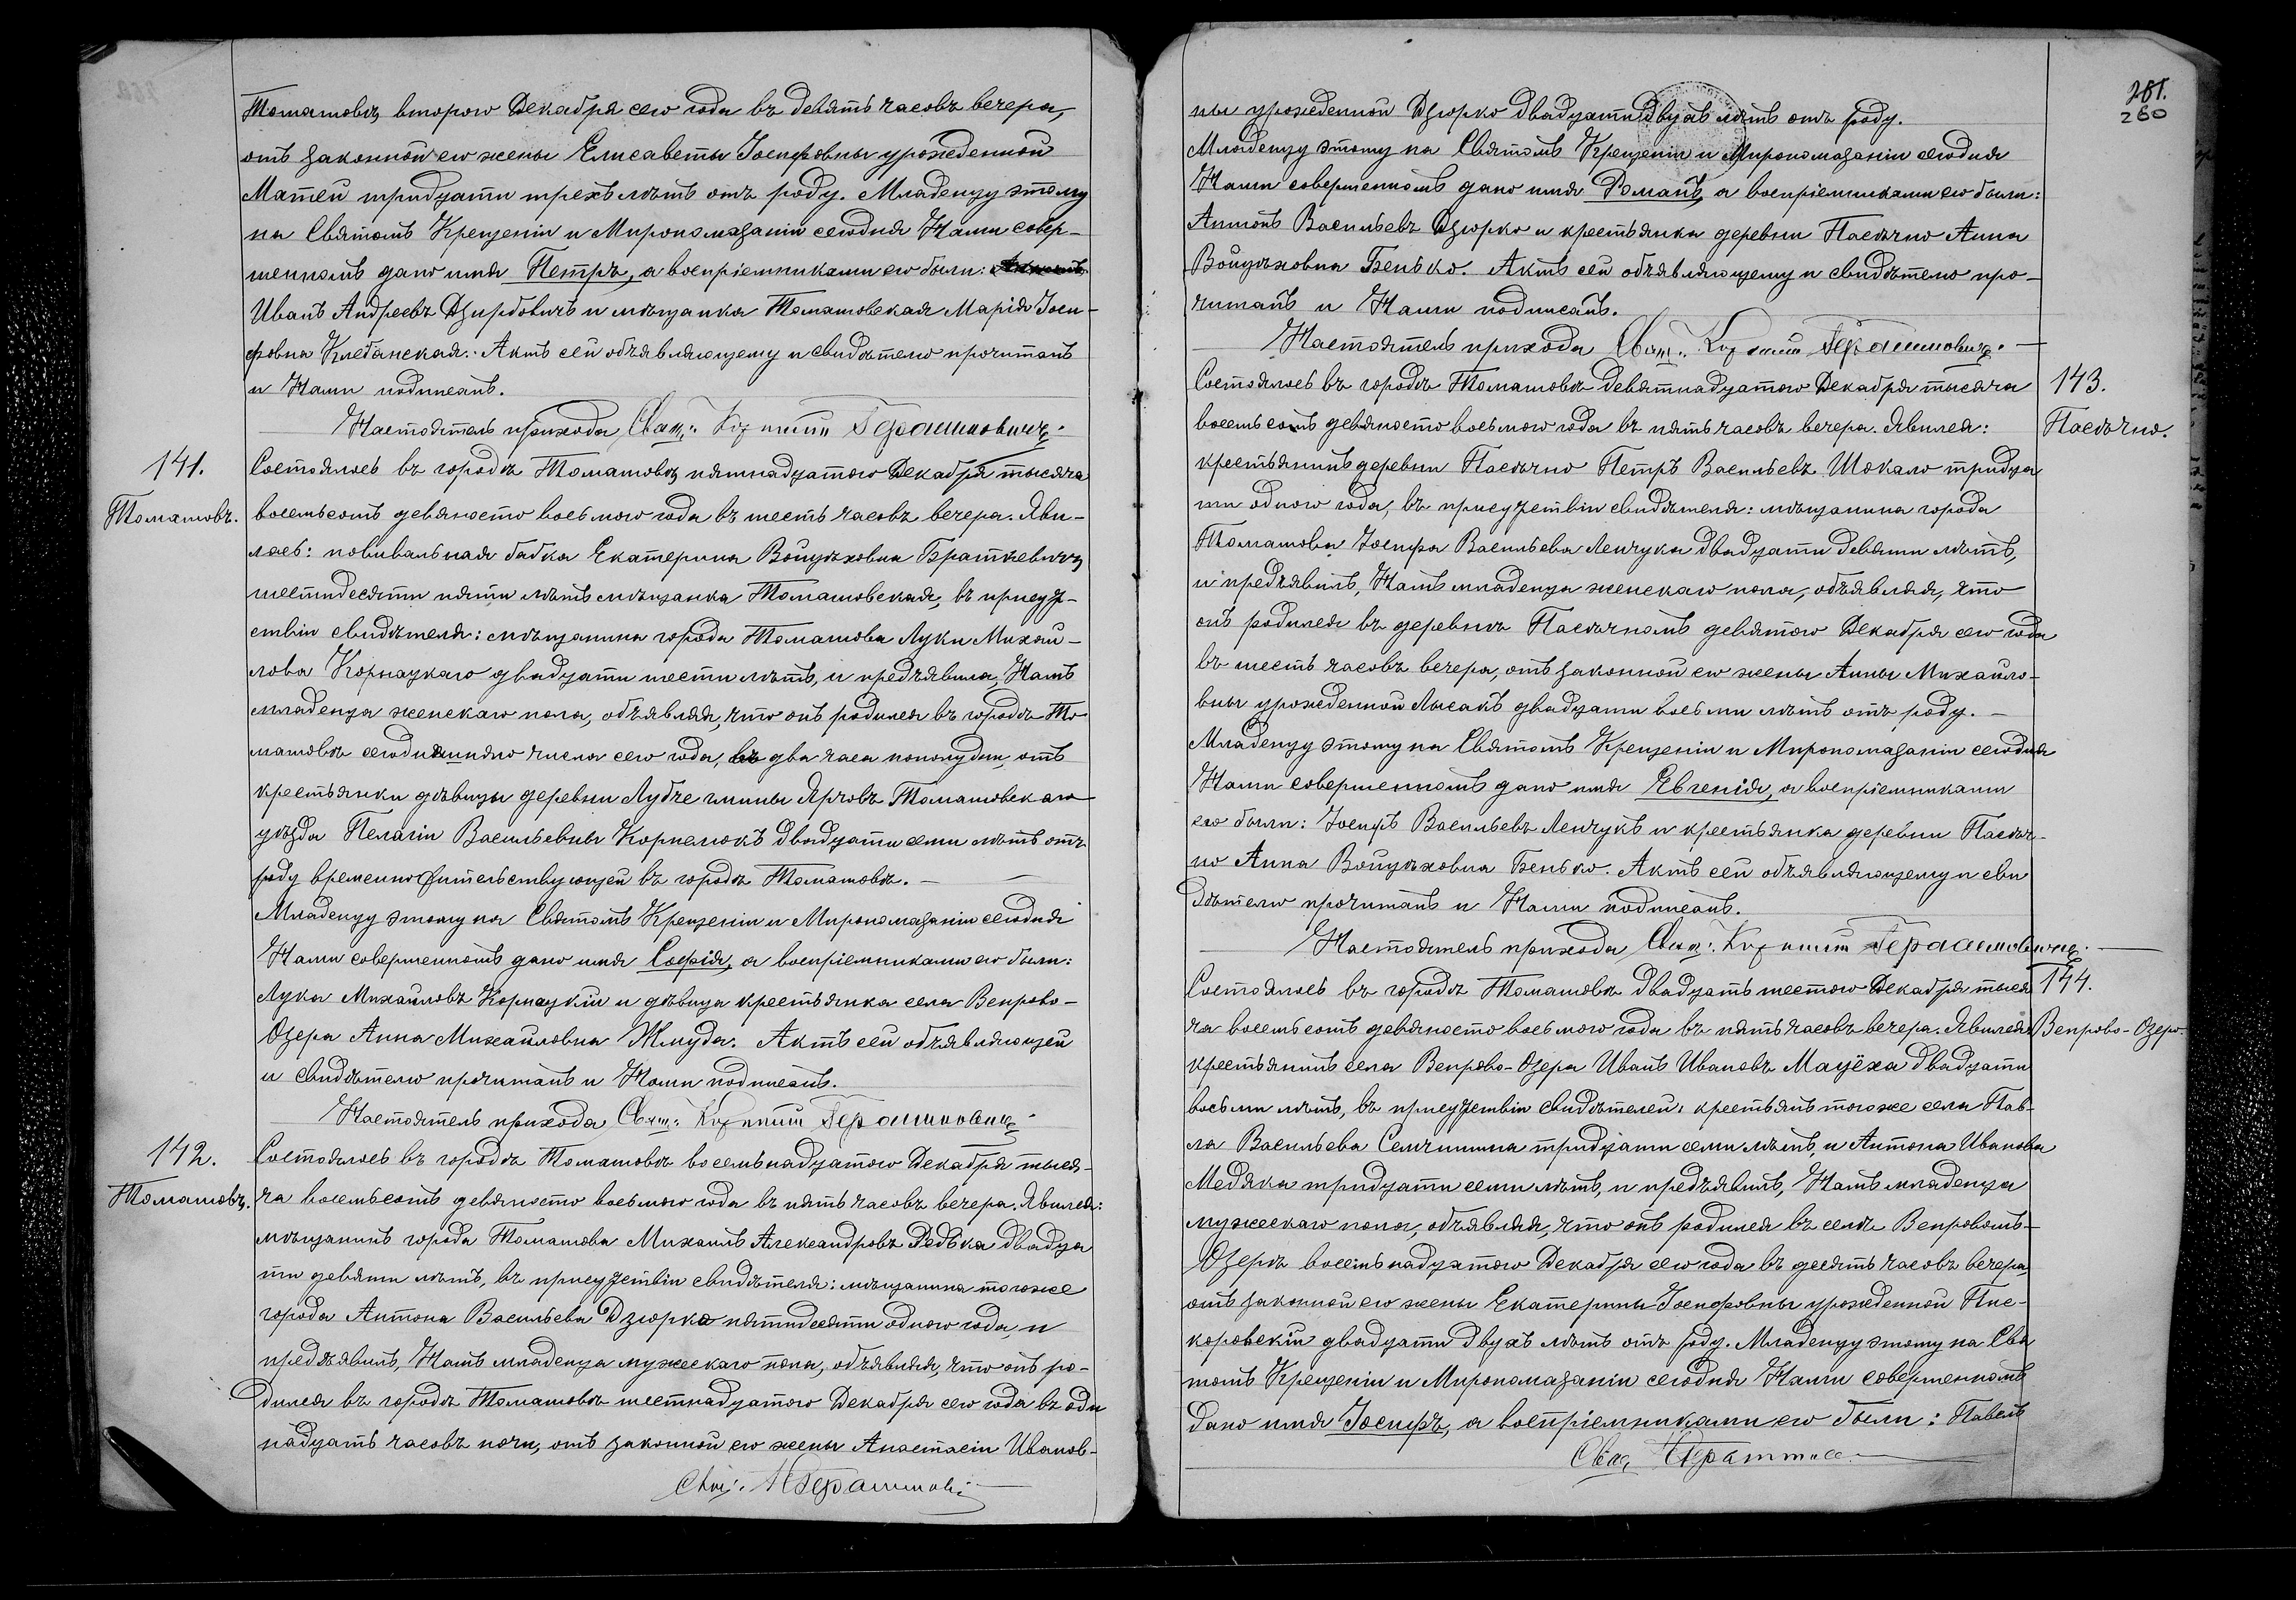 Томашовѣ, второго Декабря сего года въ девять часовъ вечера,
отъ законной его жены Елисаветы Іосифовны урожденной
Матей тридцати трехъ лѣтъ отъ роду. Младенцу этому
на Святомъ Крещеніи и Миропомазаніи сегодня Нами совер-
шенномъ дано имя Петръ, а воспріемниками его были:
Иванъ Андреевъ Дзирдовичъ и мѣщанка Томашовская Марія Іоси-
фовна Клебанская. Актъ сей объявляющему и свидѣтелю прочитанъ
и Нами подписанъ.
Настоятель прихода Свящ: Герасимовичъ.
141.
Томашовъ.
Состоялось въ городѣ Томашовѣ, пятнадцатого Декабря тысяча
восемьсотъ девяносто восьмого года въ шесть часовъ вечера. Яви-
лась: повивальная бабка Екатерина Войцѣховна Браткевичъ
шестидесяти пяти лѣтъ мѣщанка Томашовская, въ присут-
ствіи свидѣтеля: мѣщанина города Томашова Луки Михай-
лова Корнауткаго двадцати шести лѣтъ, и предъявила Намъ
младенца женскаго пола, объявляя, что онъ родился въ городѣ То-
машовѣ сегодняшняго числа сего года, въ два часа пополудни, отъ
крестьянки дѣвицы деревни гмины Ярчовъ Томашовскаго
уѣзда Пелагіи Васильевны Корнелюкъ двадцати семи лѣтъ отъ
роду временно жительствующей въ городѣ Томашовѣ.
Младенцу этому на Святомъ Крещеніи и Миропомазаніи сегодня
Нами совершенномъ дано имя Софія, а воспріемниками его были:
Лука Михайловъ и дѣвица крестьянка села Вепрово-
Озера Анна Михайловна Жмуда. Актъ сей объявляющей
и свидѣтелю прочитанъ и Нами подписанъ.
Настоятель прихода Свящ: Герасимовичъ
142.
Томашовъ.
Состоялось въ городѣ Томашовѣ восемьнадцатого Декабря тыся-
ча восемьсотъ девяносто восьмого года въ пять часовъ вечера. Явился:
мѣщанинъ города Томашова Михаилъ Александровъ Редька двадца
ти девяти лѣтъ, въ присутствіи свидѣтеля: мѣщанина тогоже
города Антона Васильева Дзюрко пятидесяти одного года, и
предъявилъ, Намъ младенца мужескаго пола, объявляя, что онъ ро-
дился въ городѣ Томашовѣ шестнадцатого Декабря сего года въ оди
надцать часовъ ночи, отъ законной его жены Анастасіи Иванов-
Свящ: К Герасимови
281.
260
ны урожденной Дзюрко двадцати двухъ лѣтъ отъ роду.
Младенцу этому на Святомъ Крещеніи и Миропомазаніи сегодня
Нами совершенномъ дано имя Романъ, а воспріемниками его были:
Антонъ Васильевъ Дзюрко и крестьянка деревни Пасѣчно Анна
Войцѣховна Бенько. Актъ сей объявляющему и свидѣтелю про-
читанъ и Нами подписанъ.
Настоятель прихода Свящ: Герасимовичъ.
143.
Пасѣчно.
Состоялось въ городѣ Томашовѣ девятнадцатого Декабря тысяча
восемьсотъ девяносто восьмого года въ пять часовъ вечера. Явился:
крестьянинъ деревни Пасѣчно Петръ Васильевъ Шокало тридца
ти одного года, въ присутствіи свидѣтеля: мѣщанина города
Томашова Іосифа Васильева Ленчука двадцати девяти лѣтъ,
и предъявилъ, Намъ младенца женскаго пола, объявляя, что
онъ родился въ деревнѣ Пасѣчномъ девятого Декабря сего года
въ шесть часовъ вечера, отъ законной его жены Анны Михайло-
вны урожденной Лысакъ двадцати восьми лѣтъ отъ роду.
Младенцу этому на Святомъ Крещеніи и Миропомазаніи сегодня
Нами совершенномъ дано имя Евгенія, а воспріемниками
его были: Іосифъ Васильевъ Ленчукъ и крестьянка деревни Пасѣч-
но Анна Войцѣховна Бенько. Актъ сей объявляющему и сви
дѣтелю прочитанъ и Нами подписанъ.
Настоятель прихода Свящ: Герасимовичъ.
144.
Вепрово-Озеро.
Состоялось въ городѣ Томашовѣ двадцать шестого Декабря тыся
ча восемьсотъ девяносто восьмого года въ пять часовъ вечера. Явился
крестьянинъ села Вепрово-Озера Иванъ Ивановъ Мацёха двадцати
восьми лѣтъ, въ присутствіи свидѣтелей, крестьянъ тогоже села Пав-
ла Васильева Семчишина тридцати семи лѣтъ, и Антона Иванова
Медяка тридцати семи лѣтъ, и предъявилъ, Намъ младенца
мужескаго пола, объявляя, что онъ родился въ селѣ Вепровомъ-
Озерѣ восемьнадцатого Декабря сего года въ десять часовъ вечера,
отъ законной его жены Екатерины Іосифовны урожденной Пис-
коровскій двадцати двухъ лѣтъ отъ роду. Младенцу этому на Свя
томъ Крещеніи и Миропомазаніи сегодня Нами совершенномъ
дано имя Іосифъ, а воспріемниками его были: Павелъ
Свящ